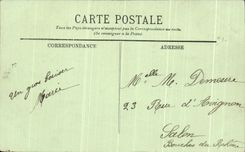 CARTE POSTALE
Tous les Pays étrangers n'acceptent pas la Correspondance au recto.
(Se renseigner à la Poste)
CORRESPONDANCE
ADRESSE
Un gros baiser
Marie
Melle M. Demeure
23 Rue d'Avignon
Salon
Bouches du Rhône